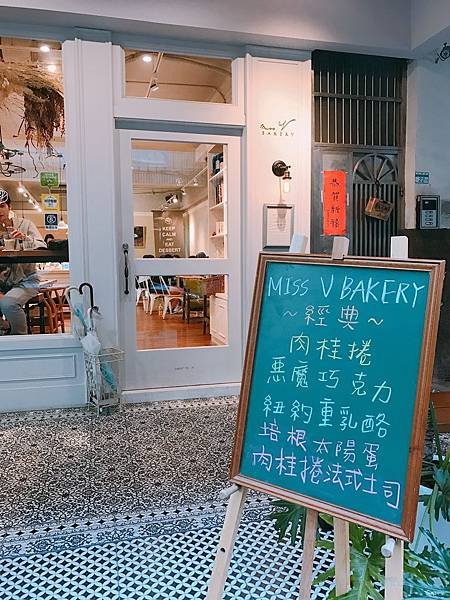 Miss V
BAKERY
KEEP
CALM
AND
EAT
DESSERT
恭賀新禧
MISS V BAKERY
~經典~
肉桂捲
惡魔巧克力
紐約重乳酪
培根太陽蛋
肉桂捲法式土司